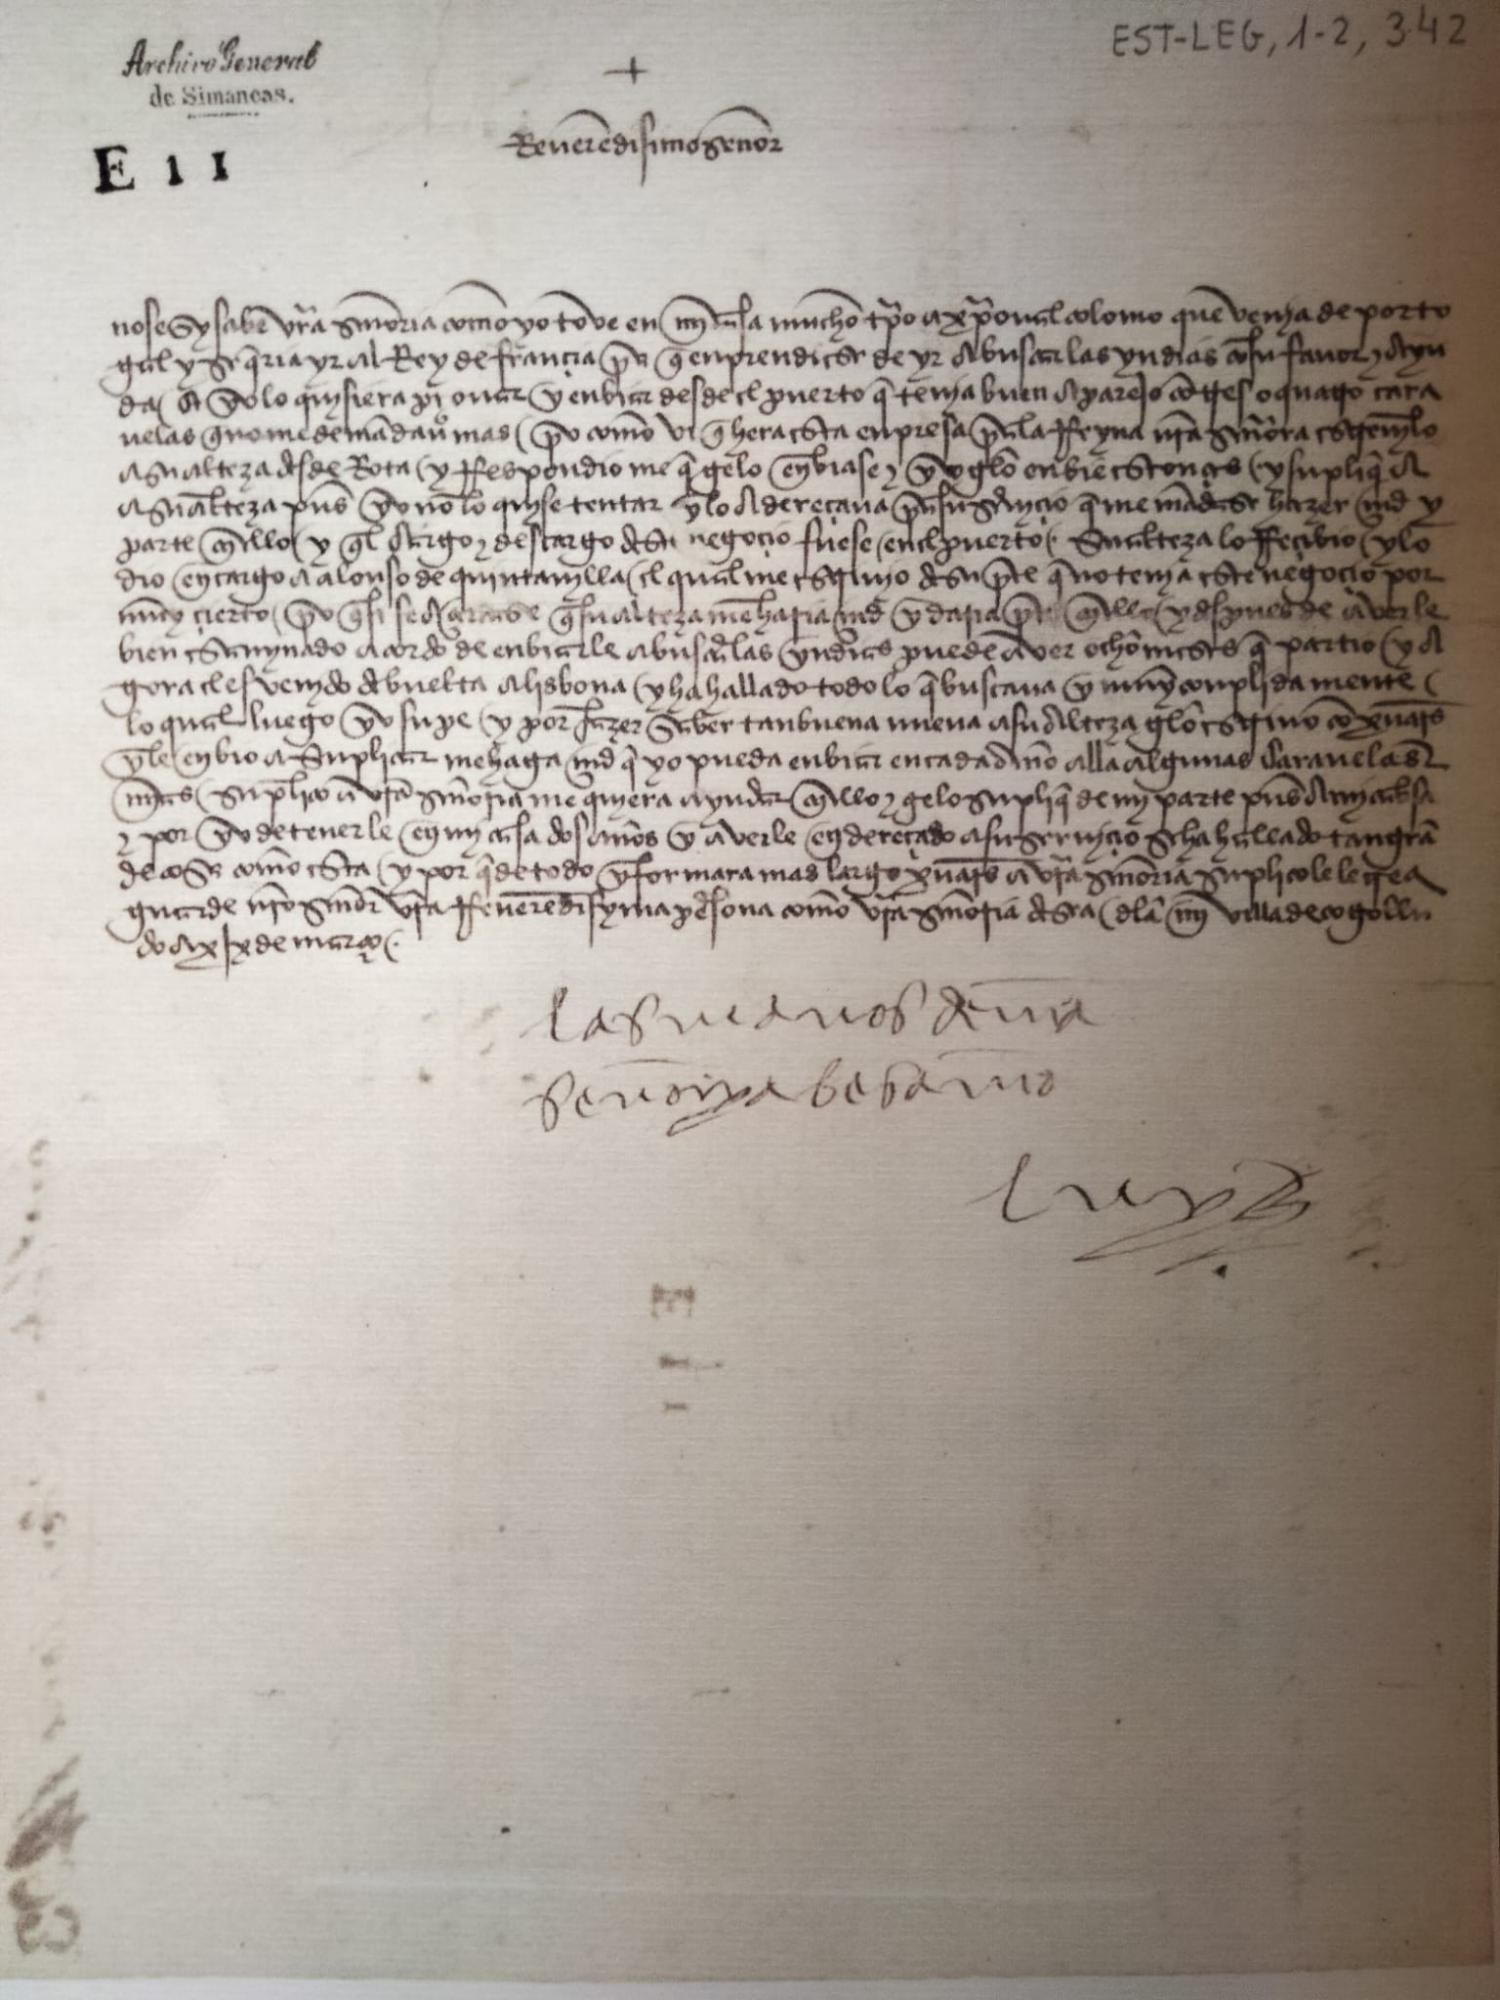 EST-LEG, 1-2, 342
Archivo General
de Simancas.
+
E 1 1
Reuerẽdisimo señor
no se sy sabe vrã señoria como yo toue en mi casa mucho tpo a xpoual colomo que venia de porto
gal y se q̃ria yr al Rey de françia pa q̃ enprendiese de yr a buscar las yndias cõ su fauor y ayu
da / e yo lo quisiera prouar y enbiar desde el puerto q̃ tenia buen aparejo cõ tres o quatro cara
uelas q̃ no me demãdaua mas / po como vi q̃ hera esta enpresa pa la Reyna nrã señora escreuilo
a su alteza desde Rota / y Respondio me q̃ gelo enbiase y yo gelo enbie estonçes / y supliq̃ a
a su alteza pues yo no lo quise tentar y lo adereçaua pa su seruiçio q̃ me mãdase hazer mrd y
parte en ello / y q̃ el cargo y descargo deste negoçio fuese en el puerto / su alteza lo Reçibio / y lo
dio en cargo a alonso de quintanilla / el qual me escriuio de su parte q̃ no tenia este negoçio por
muy çierto / po q̃ si se açertase q̃ su alteza me haria mrd y daria parte en ello / y despues de auerle
bien esaminado acordo de enbiarle a buscar las yndias puede auer ocho meses q̃ partio / y a
gora el es venido de buelta a lisbona / y ha hallado todo lo q̃ buscaua y muy conplidamente /
lo qual luego yo supe / y por fazer saber tan buena nueua a su alteza gelo escriuo cõ xuares
y le enbio a suplicar me haga mrd q̃ yo pueda enbiar en cada año alla algunas carauelas
mias / suplico a vrã señoria me quiera ayudar en ello y gelo supliq̃ de mi parte pues a mi cabsa
y por yo detenerle en mi casa dos años y auerle endereçado a su seruiçio se ha hallado tan grã
de cosa como esta / y por q̃ de todo ynformara mas largo xuares a vrã señoria suplicole le crea
guarde nro señor vrã Reuerẽdisyma persona como vrã señoria desea / de la mi villa de cogollu
do a xix de março /
las manos de vrã
señorya besamos
luys